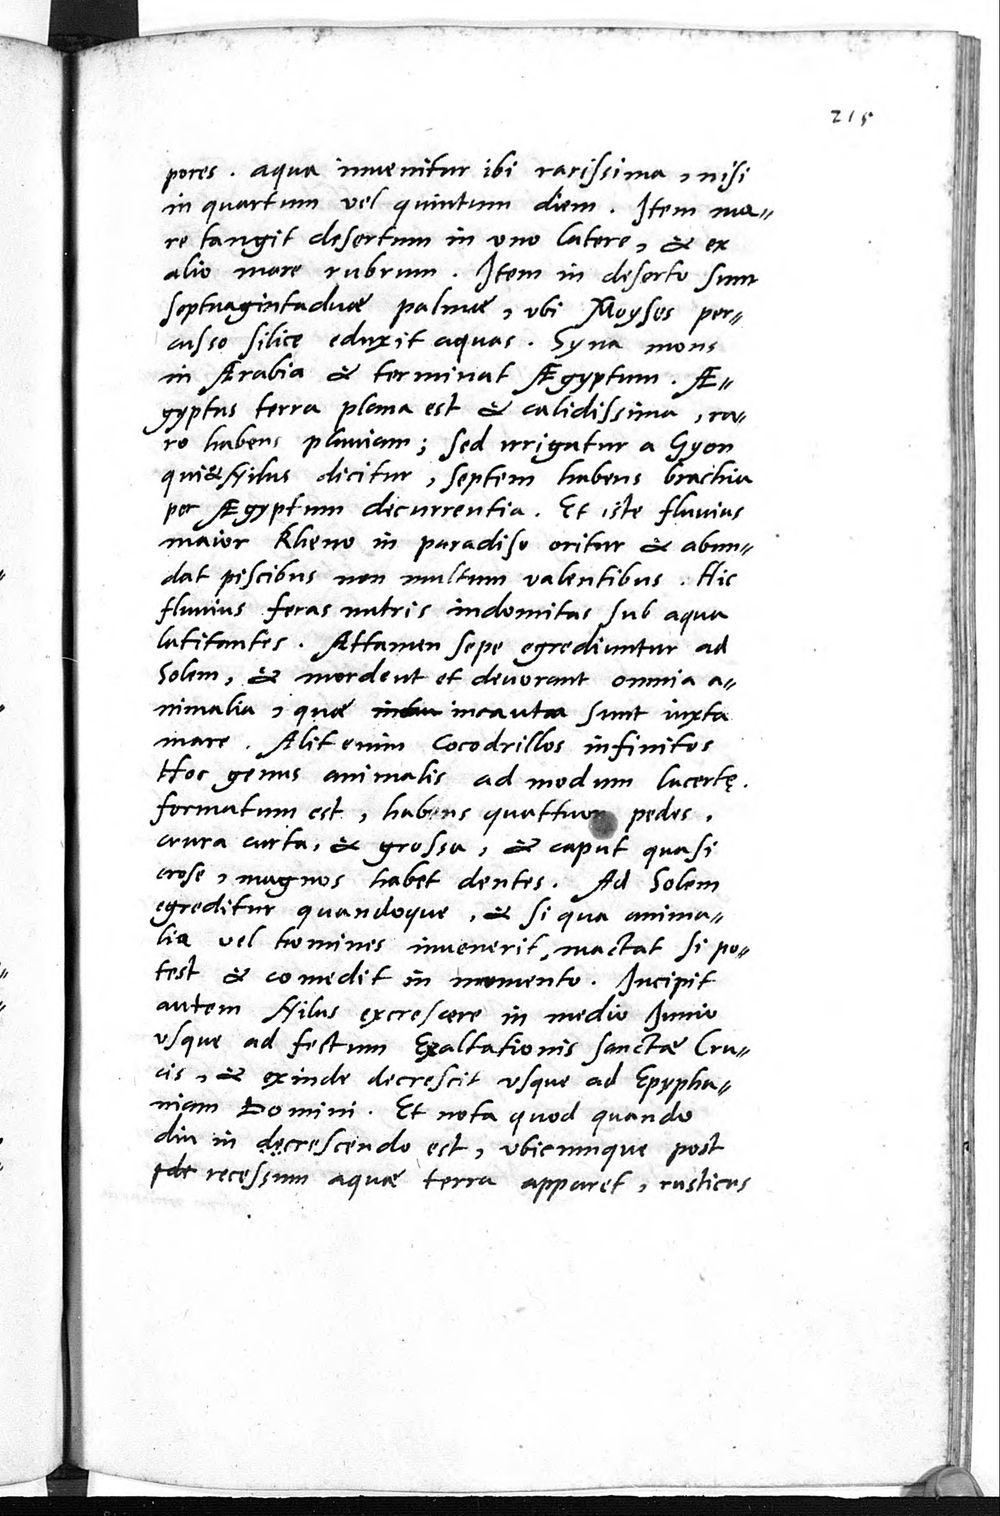 215
pores . aqua inuenitur ibi rarissima , nisi
in quartum vel quintum diem . Item ma„
re tangit desertum in vno latere , & ex
alio mare rubrum . Item in deserto sunt
septuagintaduæ palmæ , vbi Moyses per„
cusso silice eduxit aquas . Syna mons
in Ærabia & terminat Ægyptum . Æ„
gyptus terra plana est & calidissima , ra„
ro habens pluuiam ; sed irrigatur a Gyon
qui & Nilus dicitur , septem habens brachia
per Ægyptum decurrentia . Et iste fluuius
maior Rheno in paradiso oritur & abun„
dat piscibus non multum valentibus . Hic
fluuius feras nutris indomitas sub aqua
latitantes . Attamen sepe egrediuntur ad
Solem , & mordent et deuorant omnia a„
nimalia , quæ incauta sunt iuxta
mare . Alit enim Cocodrillos infinitos
Hoc genus animalis ad modum lacertę .
formatum est , habens quattuor pedes ,
crura curta , & grossa , & caput quasi
crose , magnos habet dentes . Ad Solem
egreditur quandoque , & si qua anima„
lia vel homines inuenerit , mactat si po„
test & comedit in momento . Incipit
autem Nilus excrescere in medio Junio
vsque ad festum Exaltationis sanctæ Cru„
cis , & exinde decrescit vsque ad Epypha„
niam Domini . Et nota quod quando
diu in decrescendo est , vbicumque post
recessum aquæ terra apparet , rusticus